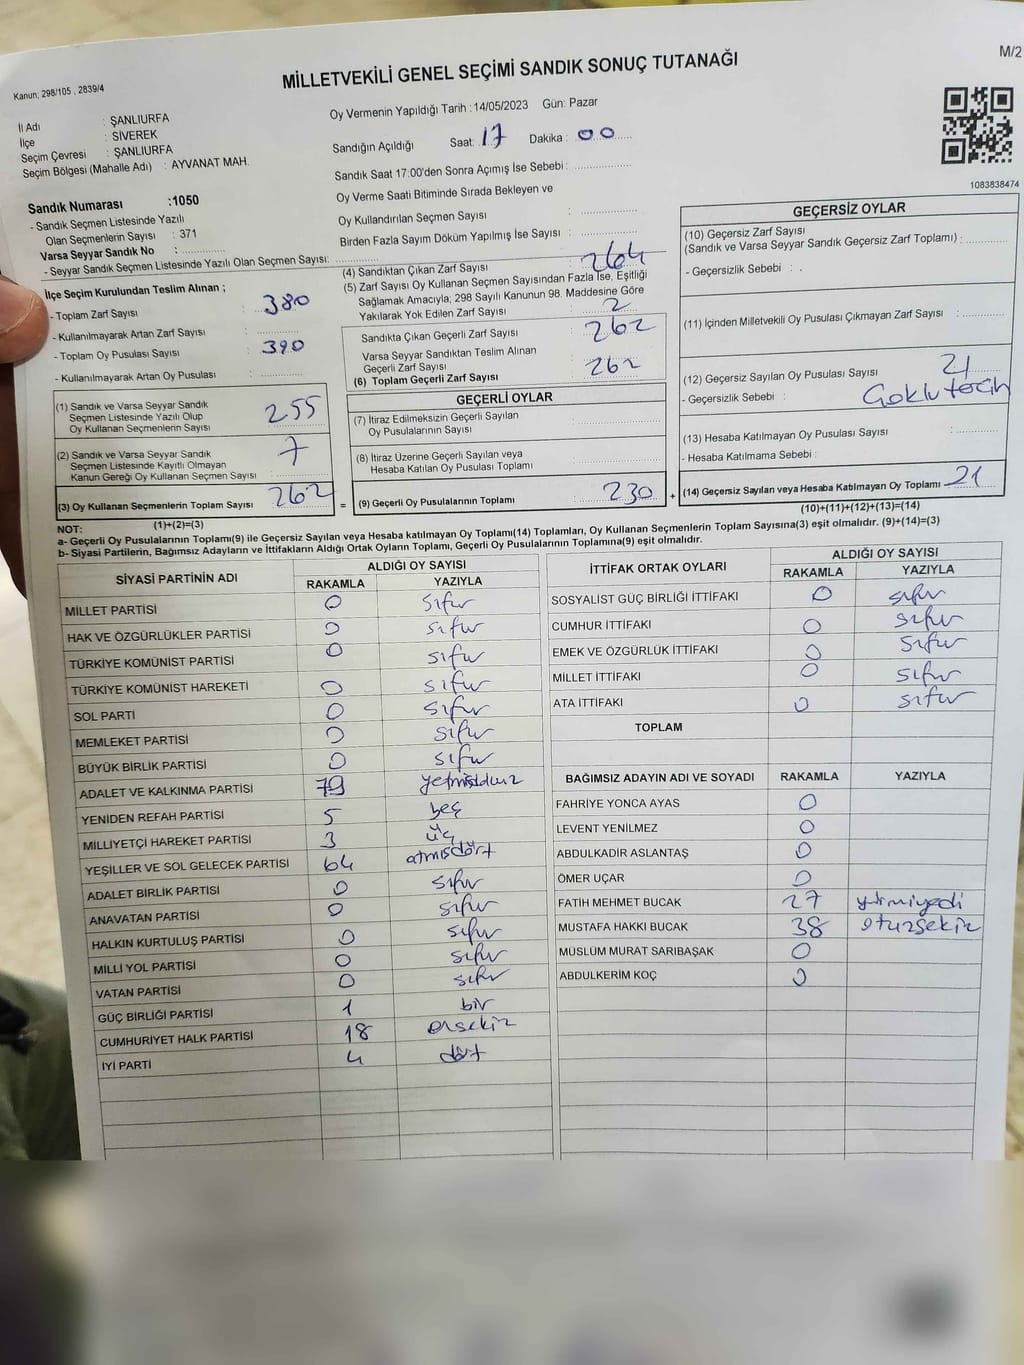 Kanun; 298/105 , 2839/4
MİLLETVEKİLİ GENEL SEÇİMİ SANDIK SONUÇ TUTANAĞI
M/2
İl Adı : ŞANLIURFA
İlçe : SİVEREK
Seçim Çevresi : ŞANLIURFA
Seçim Bölgesi (Mahalle Adı) : AYVANAT MAH.
Oy Vermenin Yapıldığı Tarih : 14/05/2023 Gün: Pazar
Sandığın Açıldığı Saat: 17 Dakika : 00
Sandık Saat 17:00'den Sonra Açımış İse Sebebi :
Oy Verme Saati Bitiminde Sırada Bekleyen ve
Oy Kullandırılan Seçmen Sayısı :
Birden Fazla Sayım Döküm Yapılmış İse Sayısı :
1083838474
Sandık Numarası :1050
- Sandık Seçmen Listesinde Yazılı
Olan Seçmenlerin Sayısı : 371
Varsa Seyyar Sandık No :
- Seyyar Sandık Seçmen Listesinde Yazılı Olan Seçmen Sayısı:
İlçe Seçim Kurulundan Teslim Alınan ;
- Toplam Zarf Sayısı : 380
- Kullanılmayarak Artan Zarf Sayısı :
- Toplam Oy Pusulası Sayısı : 390
- Kullanılmayarak Artan Oy Pusulası :
(1) Sandık ve Varsa Seyyar Sandık
Seçmen Listesinde Yazılı Olup
Oy Kullanan Seçmenlerin Sayısı : 255
(2) Sandık ve Varsa Seyyar Sandık
Seçmen Listesinde Kayıtlı Olmayan
Kanun Gereği Oy Kullanan Seçmen Sayısı : 7
(3) Oy Kullanan Seçmenlerin Toplam Sayısı : 262 =
(1)+(2)=(3)
(4) Sandıktan Çıkan Zarf Sayısı : 264
(5) Zarf Sayısı Oy Kullanan Seçmen Sayısından Fazla İse, Eşitliği
Sağlamak Amacıyla; 298 Sayılı Kanunun 98. Maddesine Göre
Yakılarak Yok Edilen Zarf Sayısı : 2
Sandıkta Çıkan Geçerli Zarf Sayısı : 262
Varsa Seyyar Sandıktan Teslim Alınan
Geçerli Zarf Sayısı :
(6) Toplam Geçerli Zarf Sayısı 262
GEÇERLİ OYLAR
(7) İtiraz Edilmeksizin Geçerli Sayılan
Oy Pusulalarının Sayısı :
(8) İtiraz Üzerine Geçerli Sayılan veya
Hesaba Katılan Oy Pusulası Toplamı :
(9) Geçerli Oy Pusulalarının Toplamı : 230 +
GEÇERSİZ OYLAR
(10) Geçersiz Zarf Sayısı
(Sandık ve Varsa Seyyar Sandık Geçersiz Zarf Toplamı) :
- Geçersizlik Sebebi : .
(11) İçinden Milletvekili Oy Pusulası Çıkmayan Zarf Sayısı :
(12) Geçersiz Sayılan Oy Pusulası Sayısı : 21
- Geçersizlik Sebebi :
(13) Hesaba Katılmayan Oy Pusulası Sayısı :
- Hesaba Katılmama Sebebi :
(14) Geçersiz Sayılan veya Hesaba Katılmayan Oy Toplamı : 21
(10)+(11)+(12)+(13)=(14)
NOT:
a- Geçerli Oy Pusulalarının Toplamı(9) ile Geçersiz Sayılan veya Hesaba katılmayan Oy Toplamı(14) Toplamları, Oy Kullanan Seçmenlerin Toplam Sayısına(3) eşit olmalıdır. (9)+(14)=(3)
b- Siyasi Partilerin, Bağımsız Adayların ve İttifakların Aldığı Ortak Oyların Toplamı, Geçerli Oy Pusulalarının Toplamına(9) eşit olmalıdır.
SİYASİ PARTİNİN ADI ALDIĞI OY SAYISI
RAKAMLA YAZIYLA
MİLLET PARTİSİ 0 sıfır
HAK VE ÖZGÜRLÜKLER PARTİSİ 0 sıfır
TÜRKİYE KOMÜNİST PARTİSİ 0 sıfır
TÜRKİYE KOMÜNİST HAREKETİ 0 sıfır
SOL PARTİ 0 sıfır
MEMLEKET PARTİSİ 0 sıfır
BÜYÜK BİRLİK PARTİSİ 0 sıfır
ADALET VE KALKINMA PARTİSİ 79
YENİDEN REFAH PARTİSİ 5 beş
MİLLİYETÇİ HAREKET PARTİSİ 3 üç
YEŞİLLER VE SOL GELECEK PARTİSİ 64 atmışdört
ADALET BİRLİK PARTİSİ 0 sıfır
ANAVATAN PARTİSİ 0 sıfır
HALKIN KURTULUŞ PARTİSİ 0 sıfır
MİLLİ YOL PARTİSİ 0 sıfır
VATAN PARTİSİ 0 sıfır
GÜÇ BİRLİĞİ PARTİSİ 1 bir
CUMHURİYET HALK PARTİSİ 18 onsekiz
İYİ PARTİ 4 dört
İTTİFAK ORTAK OYLARI ALDIĞI OY SAYISI
RAKAMLA YAZIYLA
SOSYALİST GÜÇ BİRLİĞİ İTTİFAKI 0 sıfır
CUMHUR İTTİFAKI 0 sıfır
EMEK VE ÖZGÜRLÜK İTTİFAKI 0 sıfır
MİLLET İTTİFAKI 0 sıfır
ATA İTTİFAKI 0 sıfır
TOPLAM
BAĞIMSIZ ADAYIN ADI VE SOYADI RAKAMLA YAZIYLA
FAHRİYE YONCA AYAS 0
LEVENT YENİLMEZ 0
ABDULKADİR ASLANTAŞ 0
ÖMER UÇAR 0
FATİH MEHMET BUCAK 27 yirmiyedi
MUSTAFA HAKKI BUCAK 38 otuzsekiz
MÜSLÜM MURAT SARIBAŞAK 0
ABDULKERİM KOÇ 0